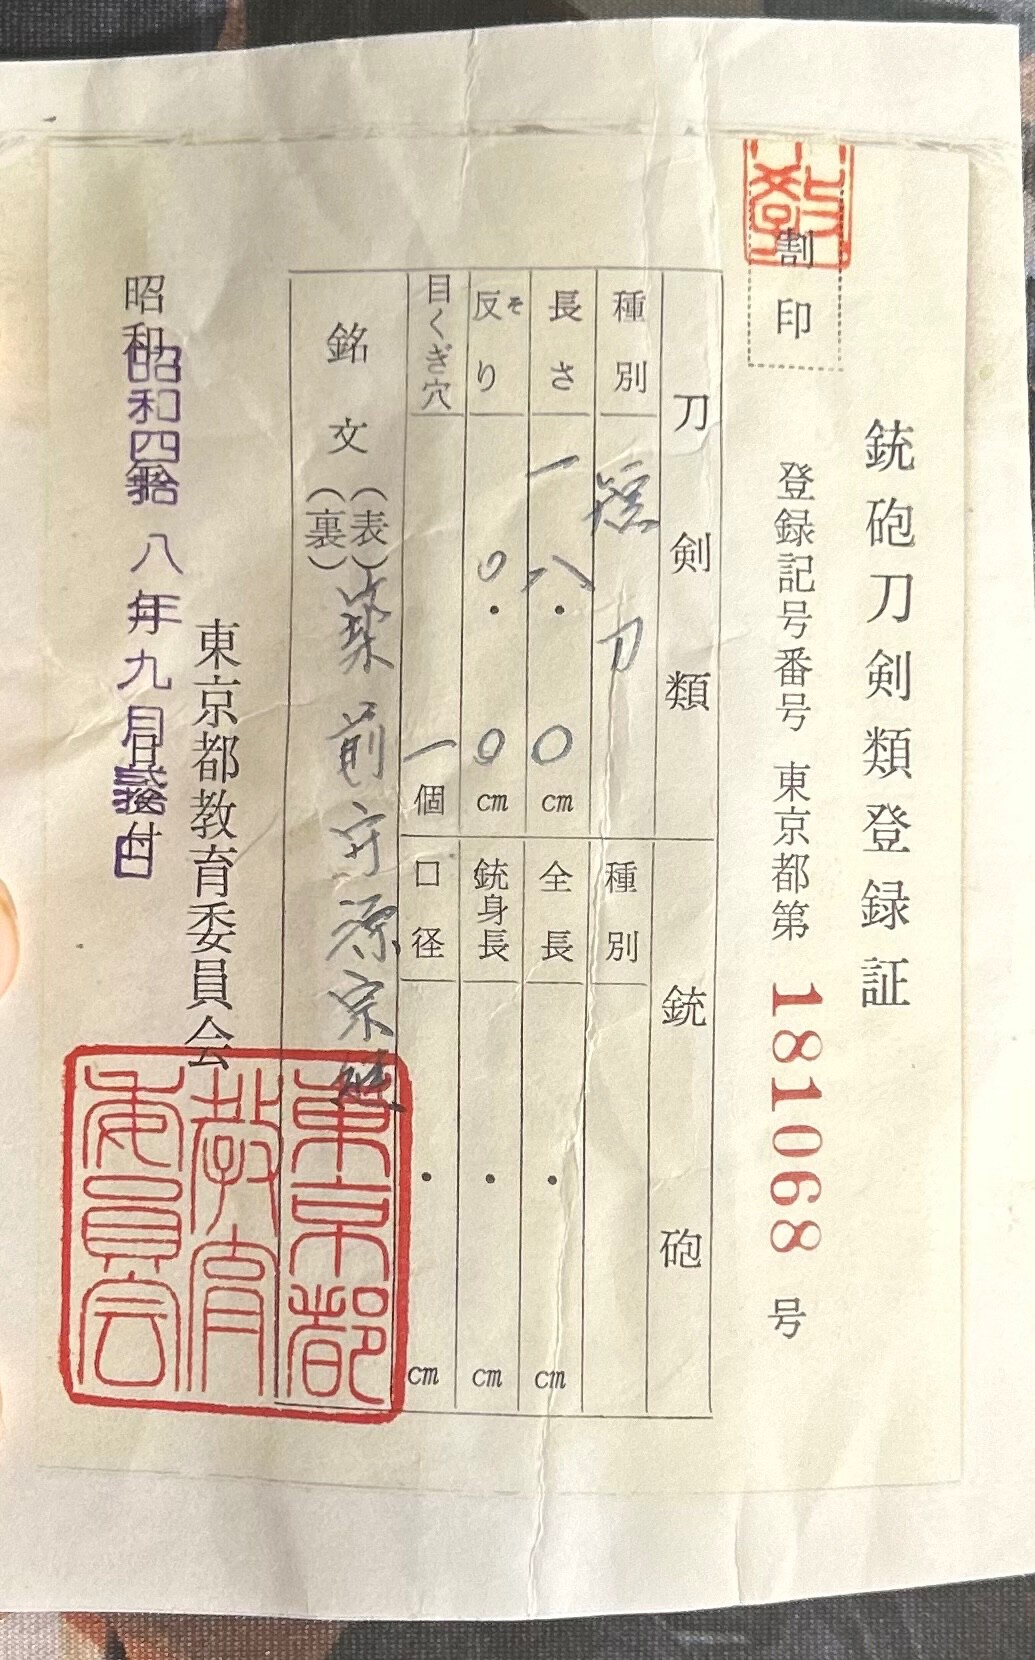 銃砲刀剣類登録証
割印
登録記号番号 東京都第 181068 号
刀剣類
銃砲
種別 短刀
種別
長さ 一八.〇 cm
全長 . cm
反り そ 〇.〇 cm
銃身長 . cm
目くぎ穴 一個
口径 . cm
銘文 (表) 築前守源宗継
(裏)
東京都教育委員会
昭和 年 月 日付
昭和四拾八年九月弐拾日
東京都
教育
委員会